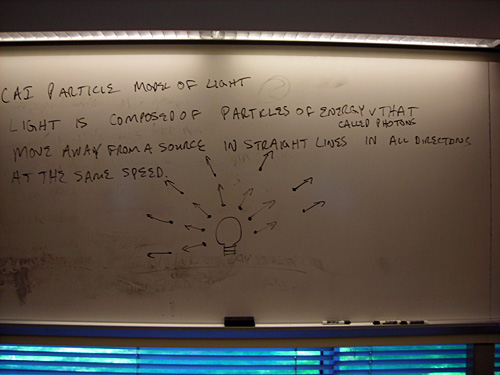 CAI PARTICLE MODEL OF LIGHT
LIGHT IS COMPOSED OF PARTICLES OF ENERGY ∨ THAT
CALLED PHOTONS
MOVE AWAY FROM A SOURCE IN STRAIGHT LINES IN ALL DIRECTIONS
AT THE SAME SPEED.